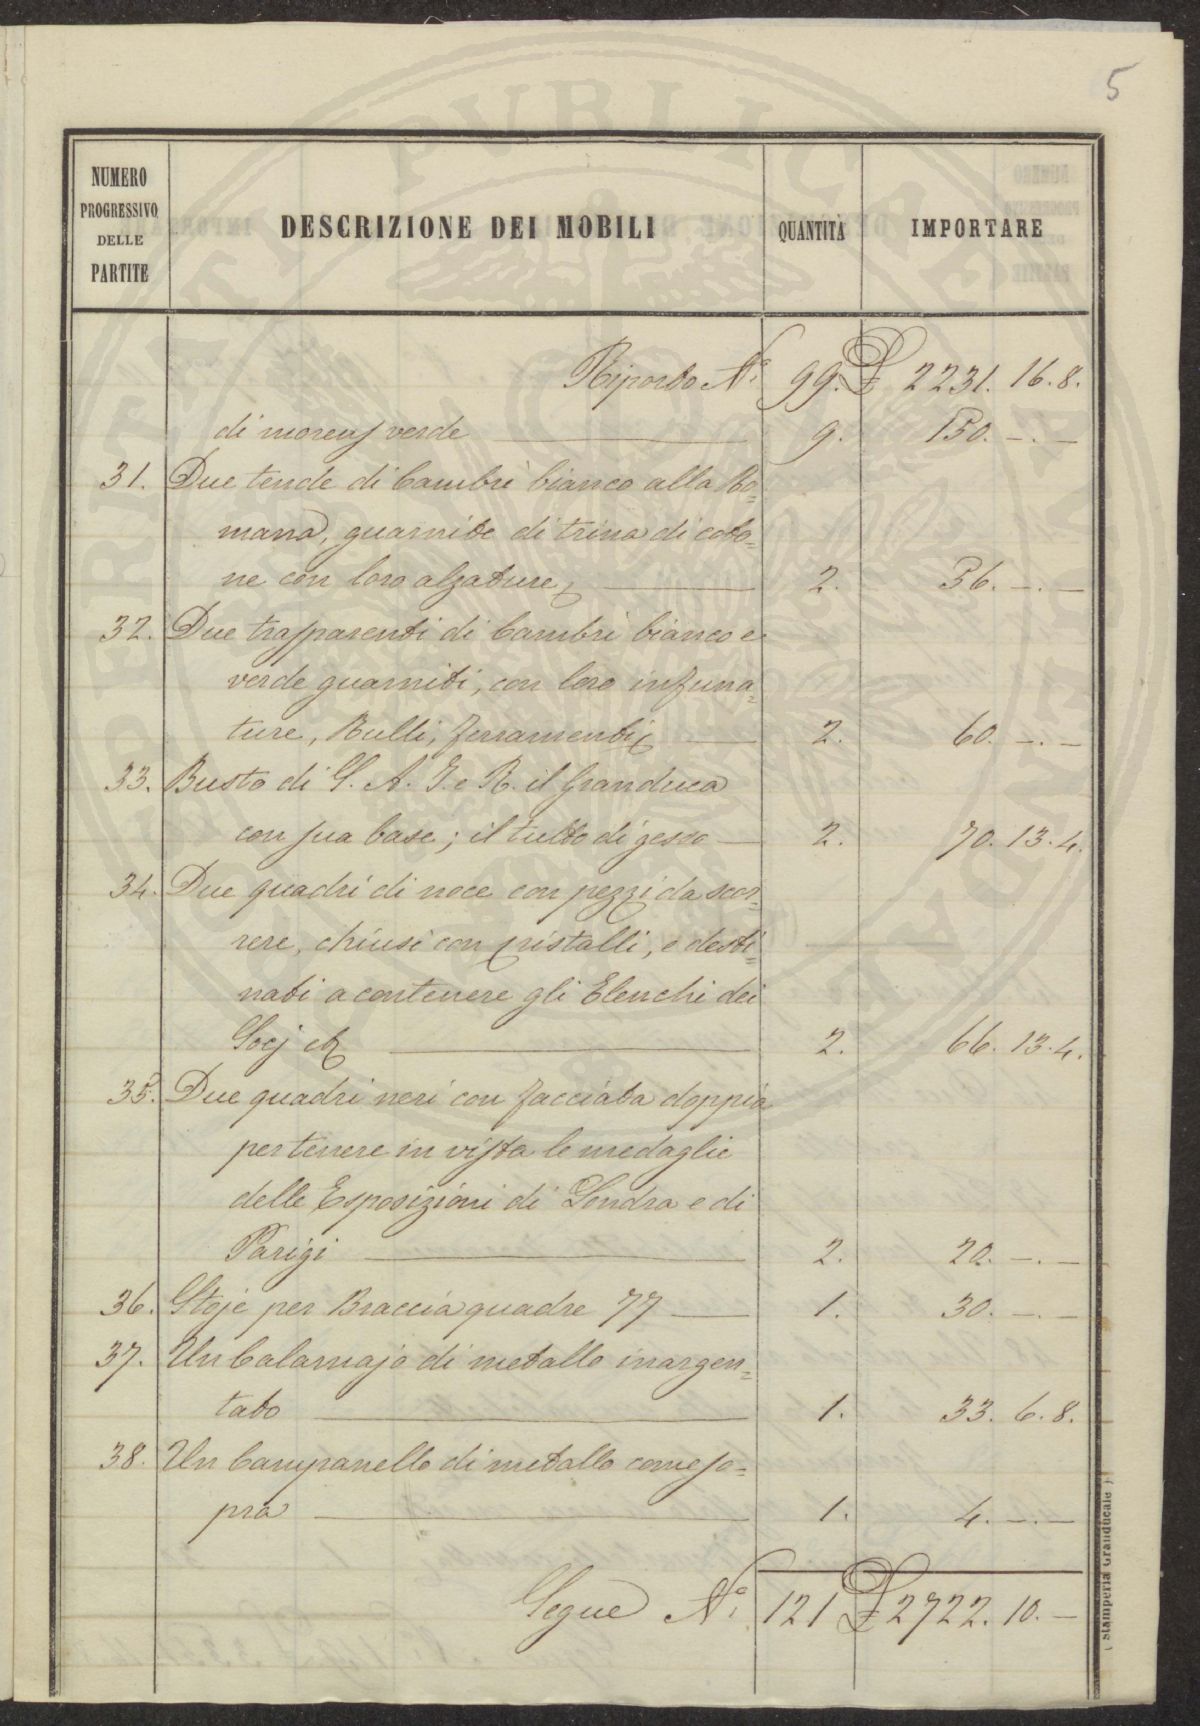 5
NUMERO
PROGRESSIVO
DELLE
PARTITE
DESCRIZIONE DEI MOBILI
QUANTITÀ
IMPORTARE
Riporto N.° 99. £ 2231. 16. 8.
di morens verde 9. 150. —. —
31. Due tende di Cambrì bianco alla Ro=
mana, guarnite di trina di coto=
ne con loro alzature 2. 56. —. —
32. Due trasparenti di Cambrì bianco e
verde guarniti, con loro infuna=
ture, Rulli, ferramenti 2. 60. —. —
33. Busto di S. A. I. e R. il Granduca
con sua base; il tutto di gesso 2. 70. 13. 4.
34. Due quadri di noce con pezzi da scor=
rere, chiusi con cristalli, e desti=
nati a contenere gli Elenchi dei
Socj &c 2. 66. 13. 4.
35. Due quadri neri con facciata doppia
per tenere in vista le medaglie
delle Esposizioni di Londra e di
Parigi 2. 20. —. —
36. Stoje per Braccia quadre 77 1. 30. —. —
37. Un Calamajo di metallo inargen=
tato 1. 33. 6. 8.
38. Un Campanello di metallo come so=
pra 1. 4. —. —
Segue N.° 121 £ 2722. 10. —
( Stamperia Granducale )